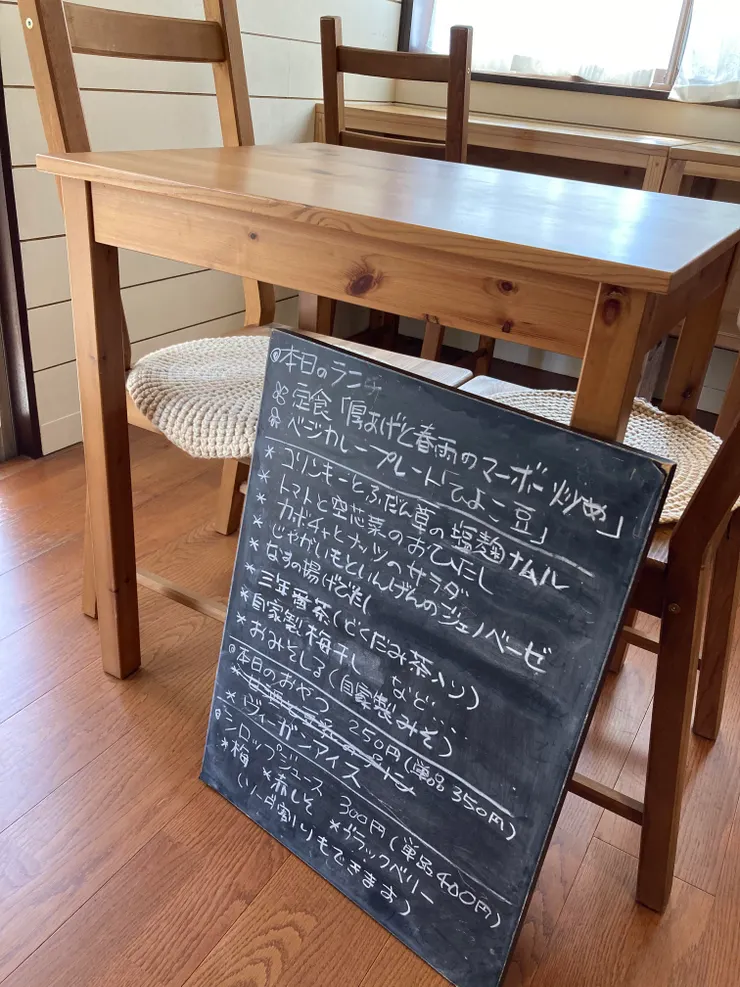 ◎本日のランチ
定食「厚あげと春雨のマーボー炒め」
ベジカレープレート「ひよこ豆」
* コリンキーとふだん草の塩麹ナムル
* トマトと空芯菜のおひたし
* カボチャとナッツのサラダ
* じゃがいもといんげんのジェノベーゼ
* なすの揚げびたし
* 三年番茶(どくだみ茶入り)
* 自家製梅干し など....
* おみそしる(自家製みそ)
◎本日のおやつ 250円(単品350円)
* ヴィーガンアイス
◎シロップジュース 300円(単品400円)
* 梅 * 赤しそ * ブラックベリー
(ソーダ割りもできます)